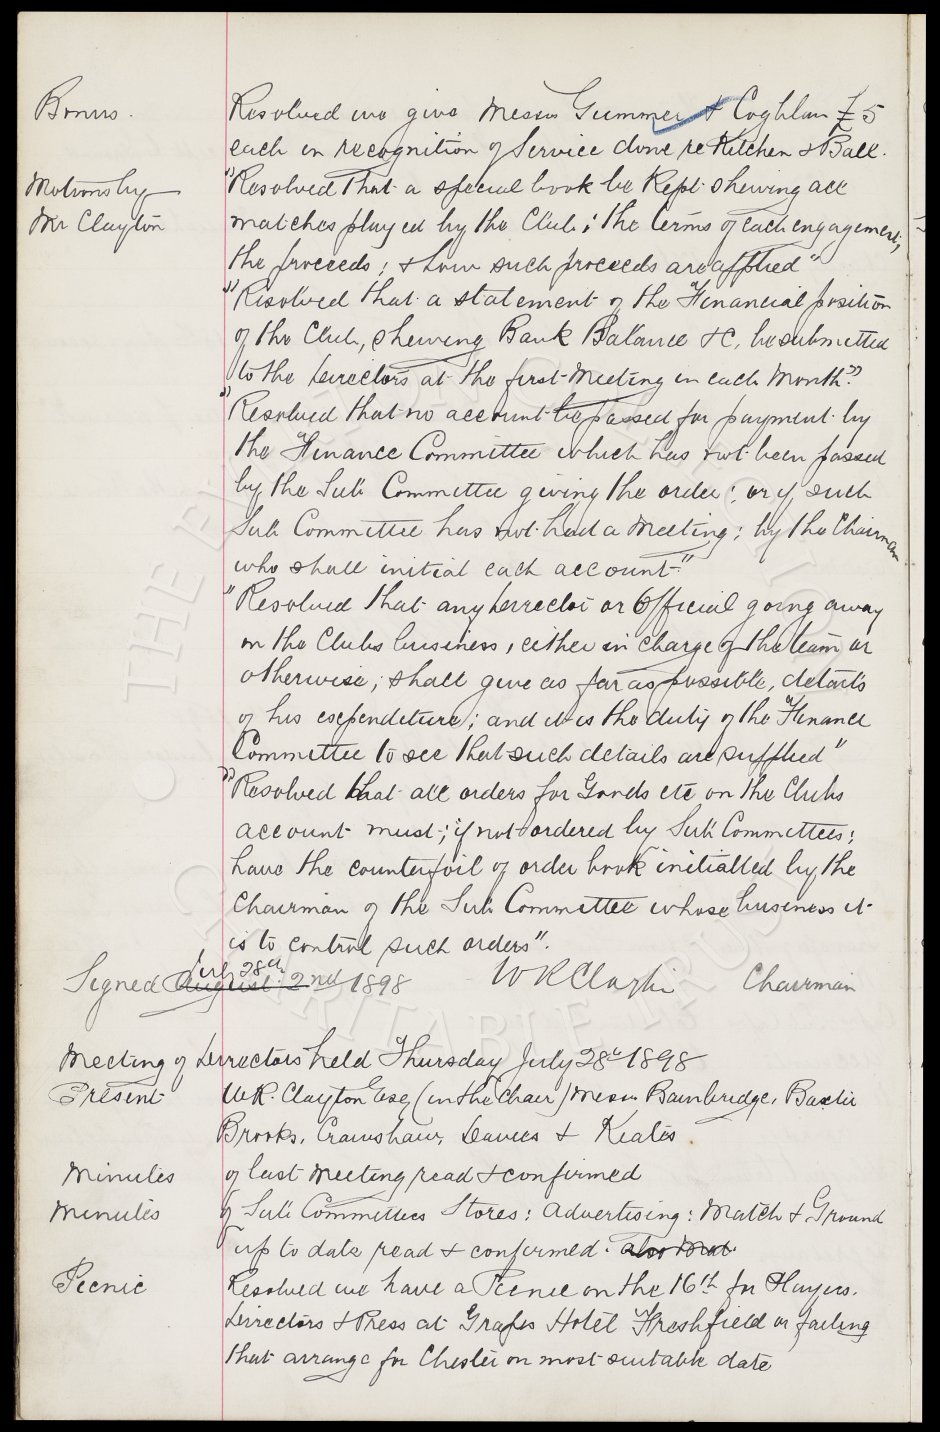 Bonus. Resolved we give Messrs Gummer & Coghlan £5
each in recognition of Service done re Kitchen & Ball.
Motions by "Resolved that a special book be kept shewing all
Mr Clayton matches played by the Club; the terms of each engagement;
the proceeds; & how such proceeds are applied"
"Resolved that a statement of the Financial position
of the Club, shewing Bank Balance &c, be submitted
to the Directors at the first Meeting in each month."
"Resolved that no account be passed for payment by
the Finance Committee which has not been passed
by the Sub Committee giving the order; or if such
Sub Committee has not had a Meeting; by the Chairman
who shall initial each account"
"Resolved that any Director or Official going away
on the Clubs business, either in charge of the team or
otherwise; shall give as far as possible, details
of his expenditure; and it is the duty of the Finance
Committee to see that such details are supplied"
"Resolved that all orders for Goods etc on the Clubs
account must; if not ordered by Sub Committees;
have the counterfoil of order book initialled by the
Chairman of the Sub Committee whose business it
is to control such orders".
July 28th
Signed August 2nd 1898 W R Clayton Chairman
Meeting of Directors held Thursday July 28th 1898
Present W.R. Clayton Esq (in the Chair) Messrs Bainbridge, Baxter
Brooks, Crawshaw, Davies & Keates.
Minutes of last Meeting read & confirmed
Minutes of Sub Committees Stores: Advertising: Match & Ground
up to date read & confirmed.
Picnic Resolved we have a Picnic on the 16th for Players.
Directors & Press at Grapes Hotel Freshfield or failing
that arrange for Chester on most suitable date